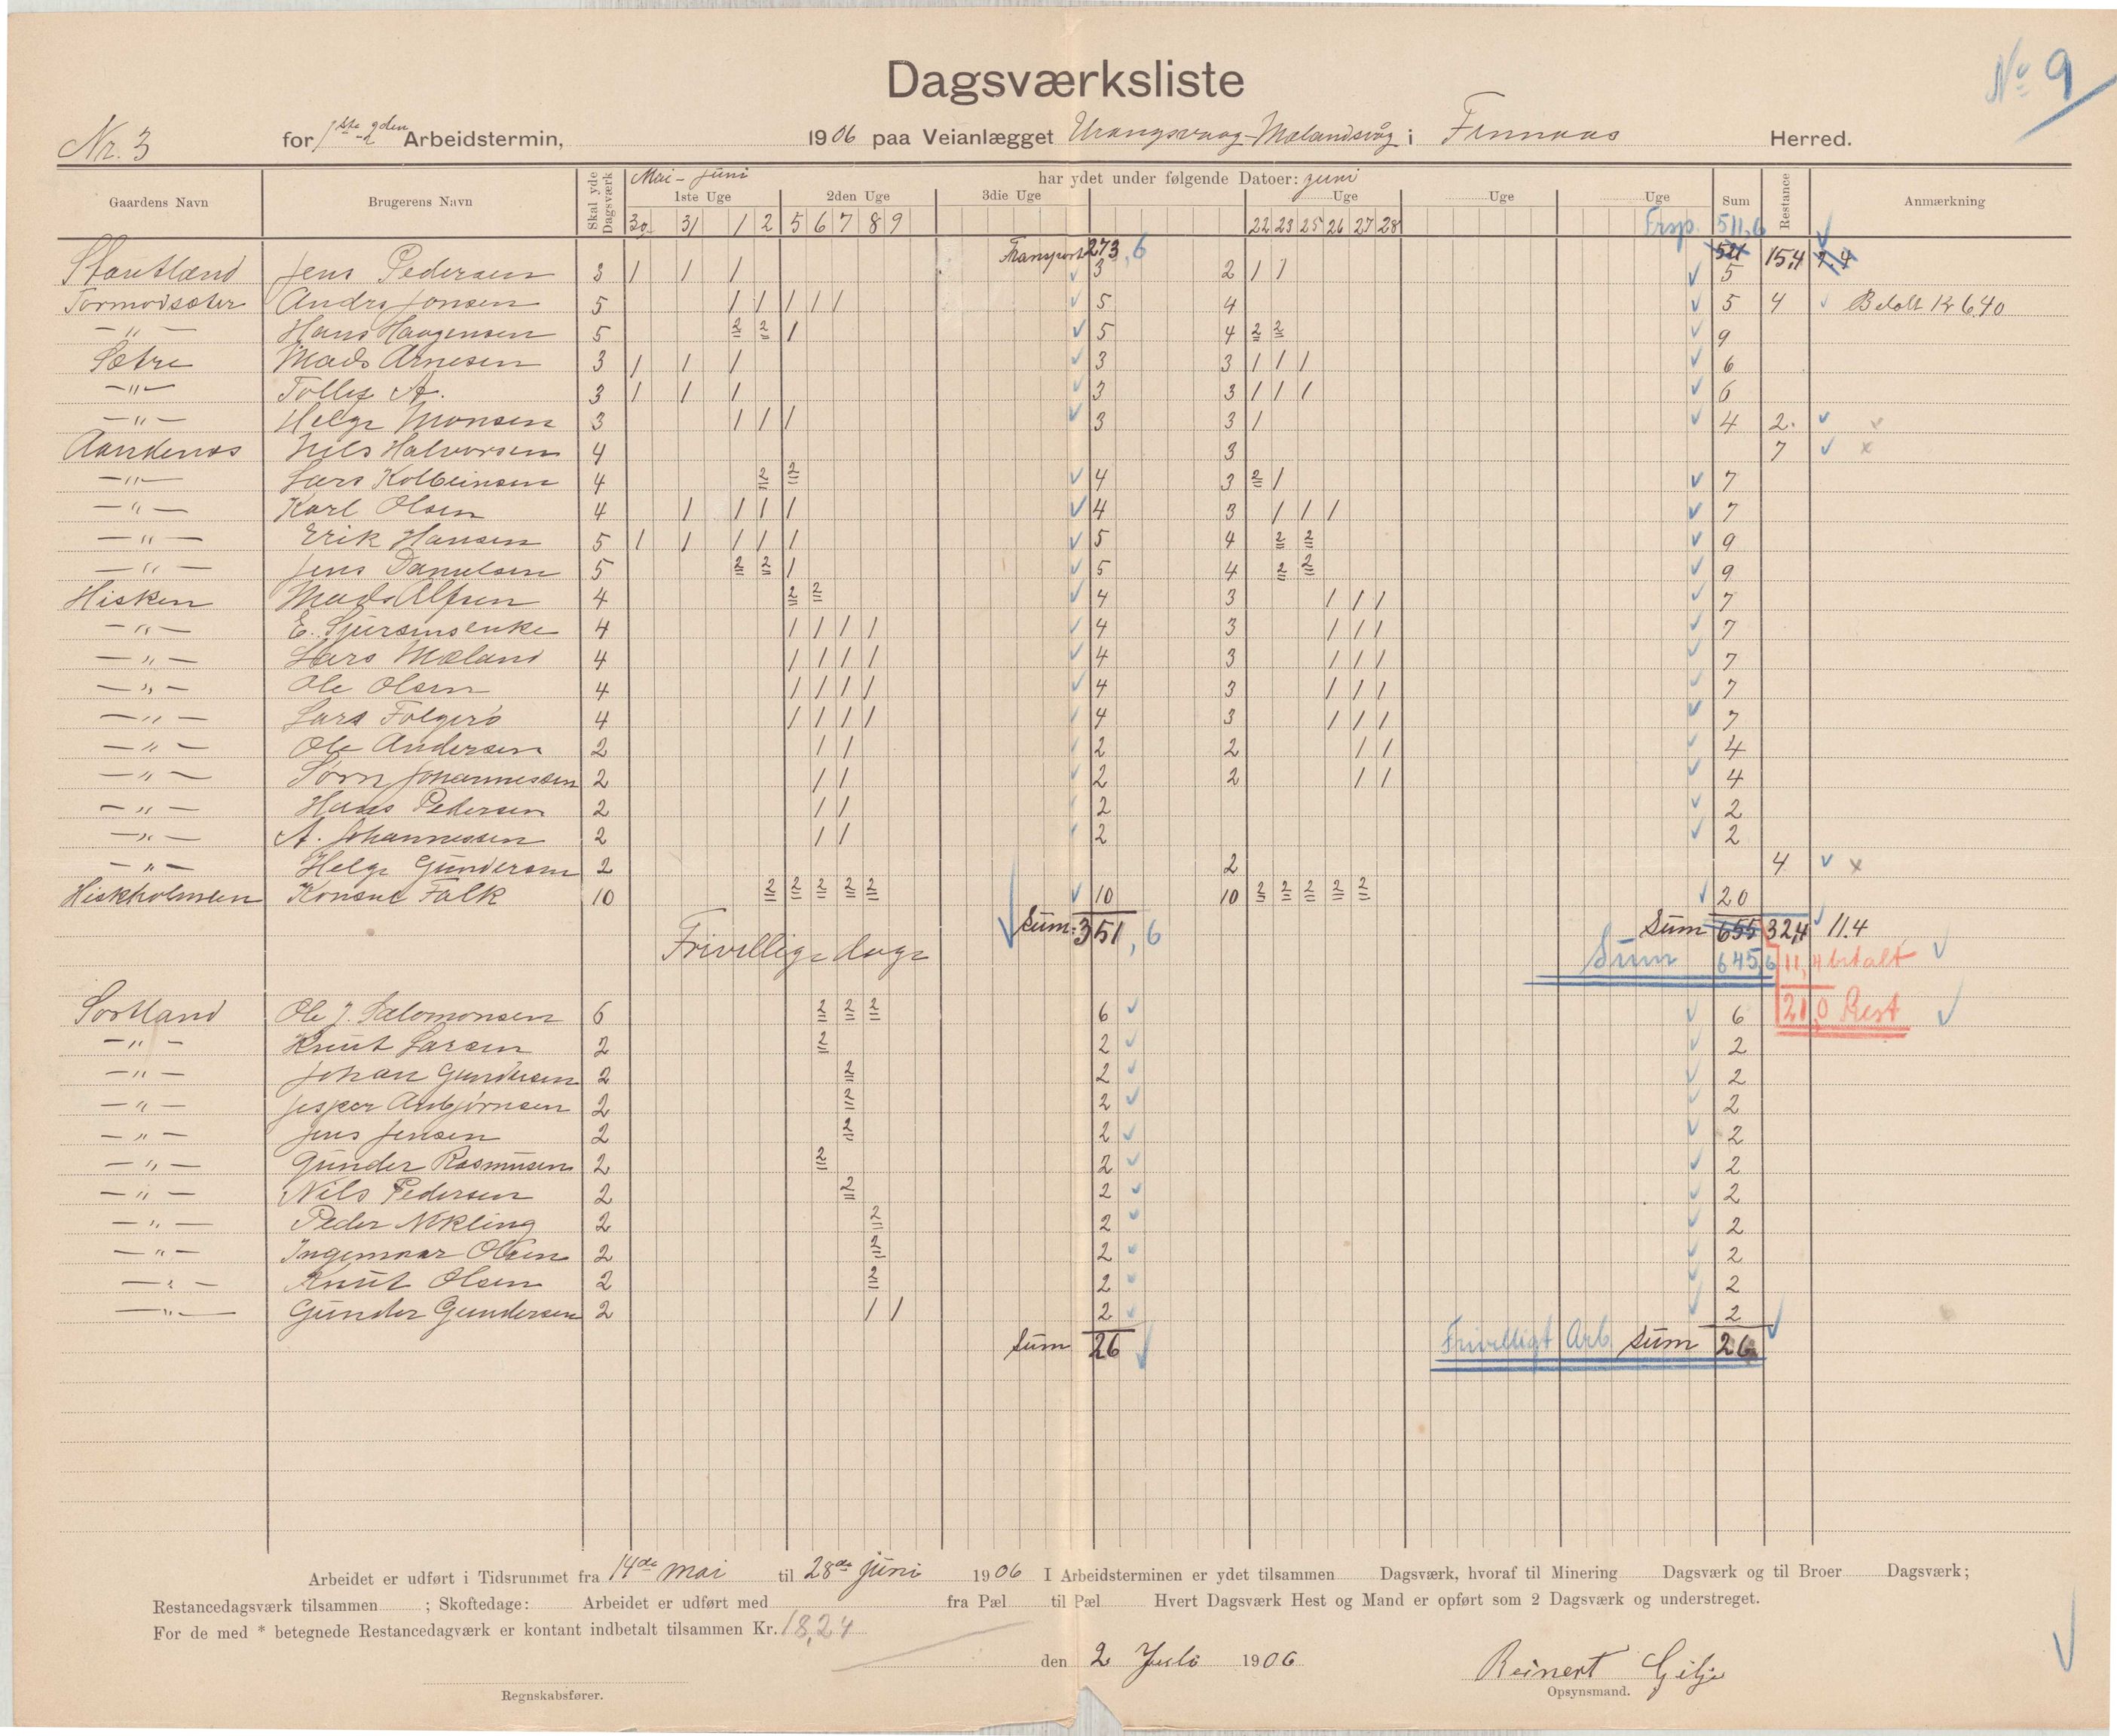 Nº 9
Dagsværksliste
Nr. 3 for 1ste-2den Arbeidstermin, 1906 paa Veianlægget Urangsvaag-Mælandsvåg i Finnaas Herred.
Gaardens Navn Brugerens Navn Skal yde Dagsværk har ydet under følgende Datoer: Sum Restance Anmærkning
Mai - Juni Juni
1ste Uge 2den Uge 3die Uge Uge Uge Uge
30 31 1 2 5 6 7 8 9 22 23 25 26 27 28 Frsp. 511,6
Transport 273,6 521 15,4 7.4
Stautland Jens Pedersen 3 1 1 1 3 2 1 1 5
Tormodsæter Andrs Jonsen 5 1 1 1 1 1 5 4 5 4 Betalt Kr 6.40
-"- Hans Haagensen 5 2 2 1 5 4 2 2 9
Sætre Mads Arnesen 3 1 1 1 3 3 1 1 1 6
-"- Tollef A. 3 1 1 1 3 3 1 1 1 6
-"- Helge Monsen 3 1 1 1 3 3 1 4 2.
Aandenes Nils Halvorsen 4 3 7 x
-"- Lars Kolbeinsen 4 2 2 4 3 2 1 7
-"- Karl Olsen 4 1 1 1 1 4 3 1 1 1 7
-"- Erik Hansen 5 1 1 1 1 1 5 4 2 2 9
-"- Jens Danielsen 5 2 2 1 5 4 2 2 9
Hisken Mads Alfsen 4 2 2 4 3 1 1 1 7
-"- E. Sjursensenke 4 1 1 1 1 4 3 1 1 1 7
-"- Lars Mæland 4 1 1 1 1 4 3 1 1 1 7
-"- Ole Olsen 4 1 1 1 1 4 3 1 1 1 7
-"- Lars Folgerø 4 1 1 1 1 4 3 1 1 1 7
-"- Ole Andersen 2 1 1 2 2 1 1 4
-"- Sørn Johannessen 2 1 1 2 2 1 1 4
-"- Hans Pedersen 2 1 1 2 2
-"- A. Johannessen 2 1 1 2 2
-"- Helge Gundersen 2 2 4 x
Hiskholmen Konsul Falk 10 2 2 2 2 2 10 10 2 2 2 2 2 20
Sum: 351,6 Sum 655 32,4 11.4
Frivillige dage Sum 645,6 11,4 betalt
21,0 Rest
Sortland Ole J. Salomonsen 6 2 2 2 6 6
-"- Knut Larsen 2 2 2 2
-"- Johan Gundersen 2 2 2 2
-"- Jesper Asbjørnsen 2 2 2 2
-"- Jens Jensen 2 2 2 2
-"- Gunder Rasmusen 2 2 2 2
-"- Nils Pedersen 2 2 2 2
-"- Peder Nekling 2 2 2 2
-"- Ingemaar Olsen 2 2 2 2
-"- Knut Olsen 2 2 2 2
-"- Gunder Gundersen 2 1 1 2 2
Sum 26 Frivilligt Arb Sum 26
Arbeidet er udført i Tidsrummet fra 14de Mai til 28de Juni 1906 I Arbeidsterminen er ydet tilsammen Dagsværk, hvoraf til Minering Dagsværk og til Broer Dagsværk;
Restancedagsværk tilsammen ; Skoftedage: Arbeidet er udført med fra Pæl til Pæl Hvert Dagsværk Hest og Mand er opført som 2 Dagsværk og understreget.
For de med * betegnede Restancedagværk er kontant indbetalt tilsammen Kr. 18,24
den 2 Juli 1906 Reinert Gilje
Regnskabsfører. Opsynsmand.